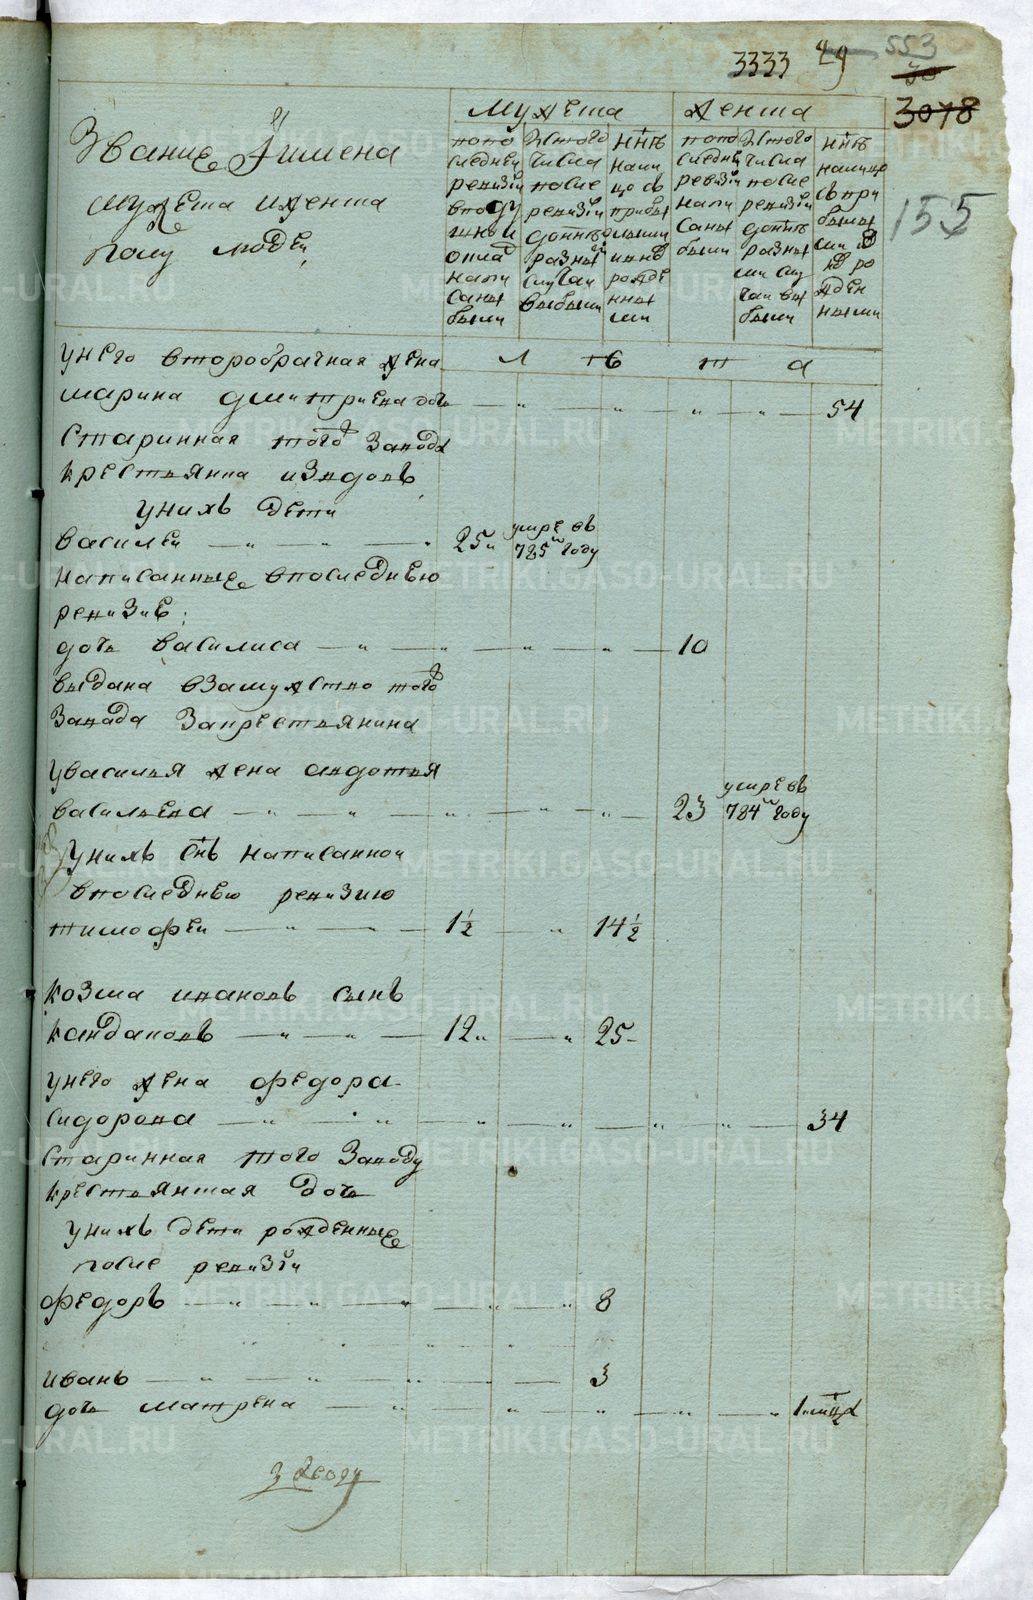 3333 29 553
30
3078
155
Звание и имена
мужеска и женска
полу людеи
мужеска женска
попо следнеи ревизiи вподу шнои оклад написаны были
Изтого числа после ревизiи донне разны случаи выбыли
Нне налицо съ прибылыми и вновь рожденными
попо следнеи ревизiи написаны были
Изтого числа после ревизiи донне разными случаи выбыли
Нне налицо съ прибылыми и рожденными
унего второбрачная жена л ѣ т а
марина дмитриева доч 54
старинная того завода
крестьянка изидоръ
унихъ дети
василеи 25 умре въ 785м году
написанные впоследнею
ревизие:
дочь василиса 10
выдана взамужство того
завода закрестьянина
увасилья жена авдотья
васильева 23 умре въ 784м году
унихъ снъ написаннои
впоследнею ревизию
тимофеи 1½ 14½
козма ивановъ сынъ
кайдаловъ 12 25
унего жена федора
сидорова 34
старинная того заводу
крестьянская дочь
унихъ дети рожденные
после ревизiи
федоръ 8
иванъ 3
дочь матрена 1 мсца